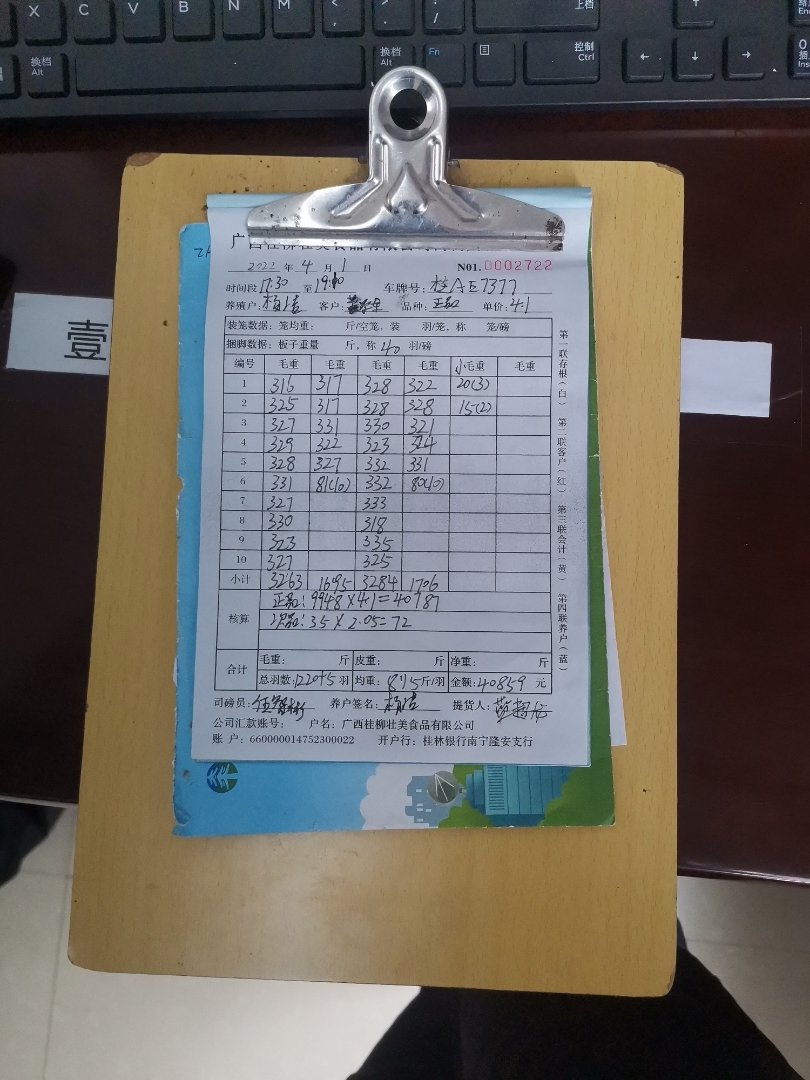 X C V B N M < > : /
, . ; 上档
换档 换档 Fn 控制
Alt Alt Ctrl ← ↓ →
壹
2022 年 4 月 1 日 N01.0002722
时间段 17:30 至 19:10 车牌号: 桂AE7377
养殖户: 客户: 品种: 正品 单价: 4.1
装笼数据: 笼均重: 斤/空笼, 装 羽/笼, 称 笼/磅
捆脚数据: 板子重量 斤, 称 40 羽/磅
编号 毛重 毛重 毛重 毛重 小毛重 毛重
1 316 317 328 322 20(3)
2 325 317 328 328 15(2)
3 327 331 330 321
4 329 322 323 324
5 328 327 332 331
6 331 81(10) 332 80(10)
7 327 333
8 330 318
9 323 335
10 327 325
小计 3263 1695 3284 1706
核算 正品: 9948×4.1=40787
次品: 35×2.05=72
合计 毛重: 斤 皮重: 斤 净重: 斤
总羽数: 1220+5 羽 均重: 8.15 斤/羽 金额: 40859 元
司磅员: 养户签名: 提货人:
公司汇款账号: 户名: 广西桂柳壮美食品有限公司
账 户: 660000014752300022 开户行: 桂林银行南宁隆安支行
第一联存根(白) 第二联客户(红) 第三联会计(黄) 第四联养户(蓝)